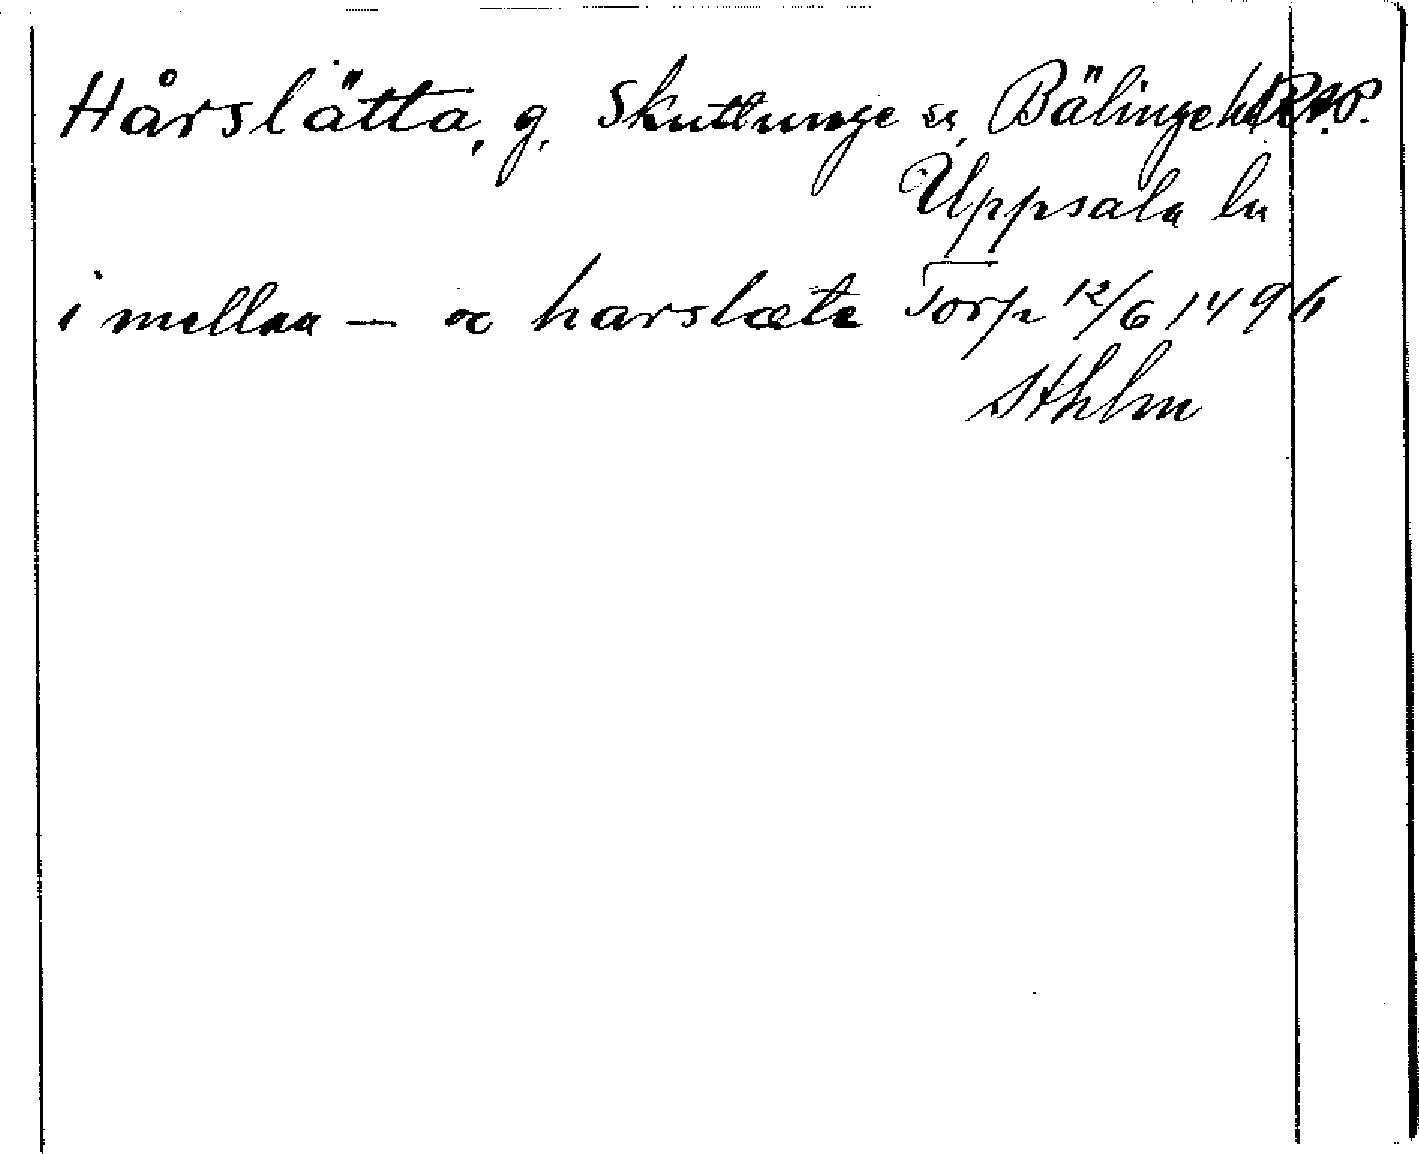 Hårslätta, g. Skuttunge sn, Bälinge hd RAP.
Uppsala län
i mellan — oc harslæte Torp 12/6 1496
Sthlm